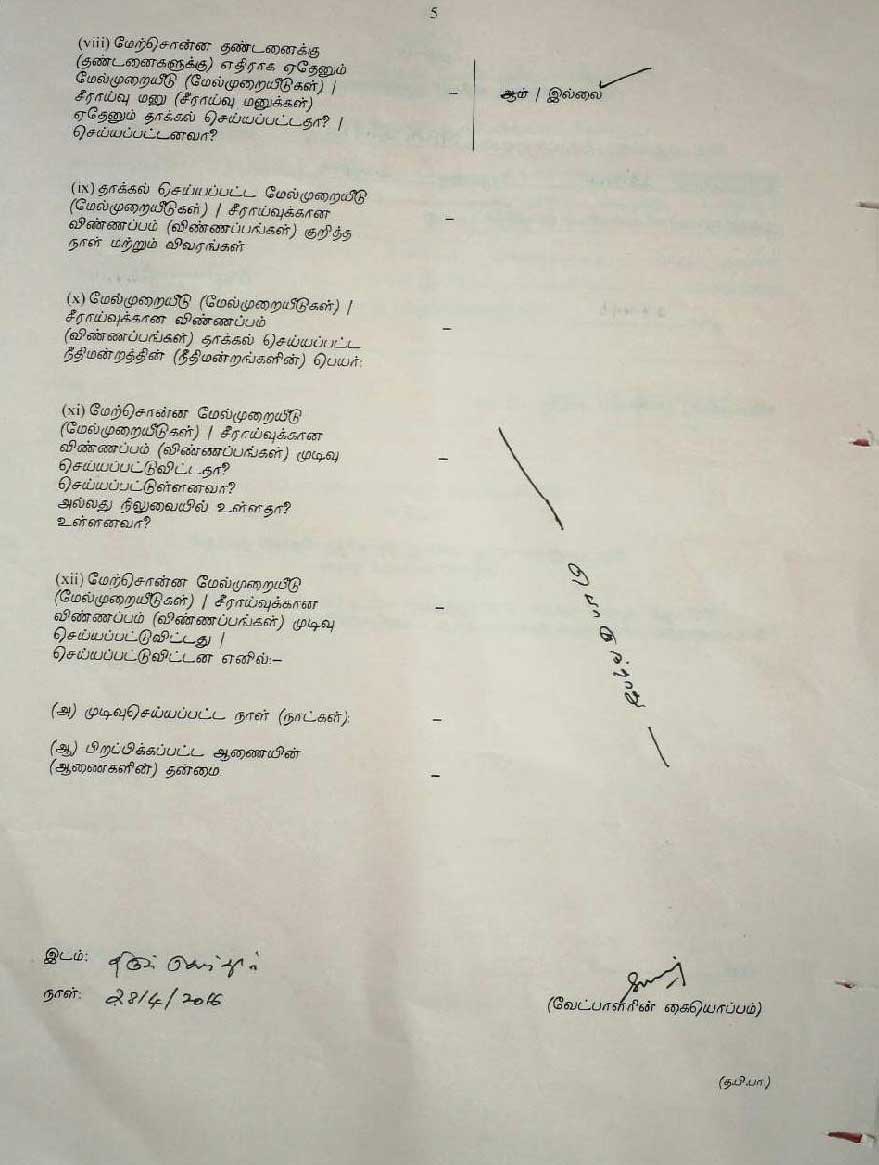 5
(viii) மேற்சொன்ன தண்டனைக்கு
(தண்டனைகளுக்கு) எதிராக ஏதேனும்
மேல்முறையீடு (மேல்முறையீடுகள்) |
சீராய்வு மனு (சீராய்வு மனுக்கள்)
ஏதேனும் தாக்கல் செய்யப்பட்டதா? |
செய்யப்பட்டனவா?
– ஆம் | இல்லை
(ix) தாக்கல் செய்யப்பட்ட மேல்முறையீடு
(மேல்முறையீடுகள்) | சீராய்வுக்கான
விண்ணப்பம் (விண்ணப்பங்கள்) குறித்த –
நாள் மற்றும் விவரங்கள்
(x) மேல்முறையீடு (மேல்முறையீடுகள்) |
சீராய்வுக்கான விண்ணப்பம் –
(விண்ணப்பங்கள்) தாக்கல் செய்யப்பட்ட
நீதிமன்றத்தின் (நீதிமன்றங்களின்) பெயர்:
(xi) மேற்சொன்ன மேல்முறையீடு
(மேல்முறையீடுகள்) | சீராய்வுக்கான
விண்ணப்பம் (விண்ணப்பங்கள்) முடிவு –
செய்யப்பட்டுவிட்டதா?
செய்யப்பட்டுள்ளனவா?
அல்லது நிலுவையில் உள்ளதா?
உள்ளனவா?
பொருந்தாது
(xii) மேற்சொன்ன மேல்முறையீடு
(மேல்முறையீடுகள்) | சீராய்வுக்கான –
விண்ணப்பம் (விண்ணப்பங்கள்) முடிவு
செய்யப்பட்டுவிட்டது |
செய்யப்பட்டுவிட்டன எனில்:–
(அ) முடிவுசெய்யப்பட்ட நாள் (நாட்கள்): –
(ஆ) பிறப்பிக்கப்பட்ட ஆணையின்
(ஆணைகளின்) தன்மை –
இடம்:
நாள்: 28/4/2016
(வேட்பாளரின் கையொப்பம்)
(த.பி.பா)